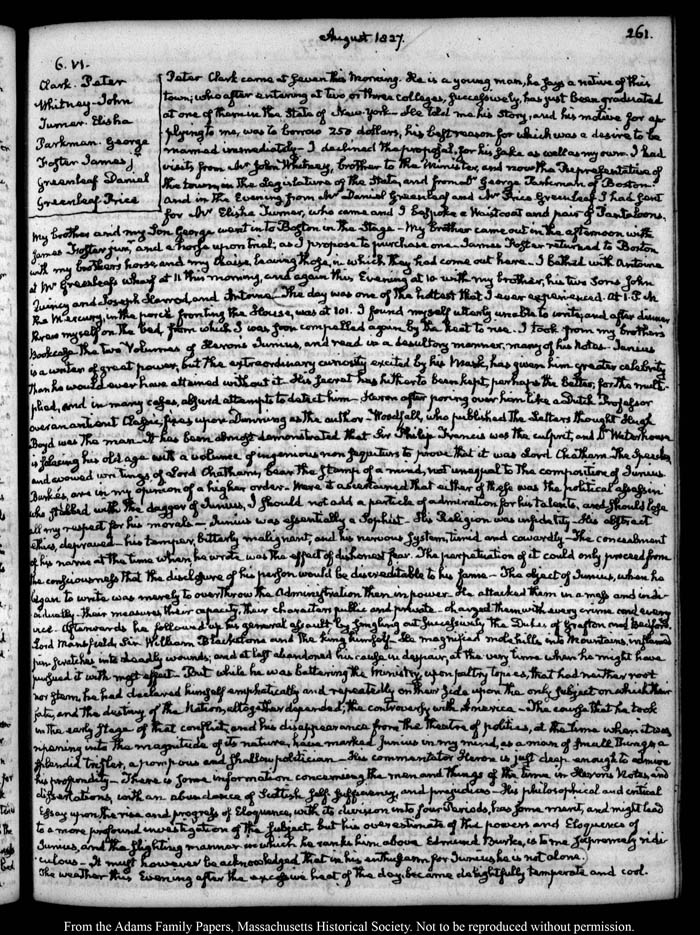 August 1827.
261.
6. VI.
Clark. Peter
Whitney. John
Turner. Elisha
Parkman. George
Foster James J
Greenleaf Daniel
Greenleaf Price
Peter Clark came at seven this Morning. He is a young man, he says a native of this
town; who after entering at two or three colleges, successively, has just been graduated
at one of them in the State of New-York — He told me his story, and his motive for ap-
plying to me, was to borrow 250 dollars, his best reason for which was a desire to be
married immediately — I declined the proposal, for his sake as well as my own. I had
visits from Mr John Whitney, brother to the Minister, and now the Representative of
the town, in the Legislature of the State, and from Dr George Parkman of Boston.
and in the Evening from Mr Daniel Greenleaf and Mr Price Greenleaf. I had sent
for Mr Elisha Turner, who came and I bespoke a Waistcoat and pair of Pantaloons.
My brother and my Son George went in to Boston in the Stage — My brother came out in the afternoon with
James Foster junr and a horse upon trial; as I propose to purchase one — James Foster returned to Boston
with my brothers horse and my chaise, leaving those, in which they had come out here. I bathed with Antoine
at Mr Greenleafs wharf at 11 this morning, and again this Evening at 10 with my brother, his two Sons John
Quincy and Joseph Harrod, and Antoine. The day was one of the hottest that I ever experienced. At 1. P.M.
the Mercury, in the porch fronting the House, was at 101. I found myself utterly unable to write; and after dinner
threw myself on the bed, from which I was soon compelled again by the heat to rise. I took from my brother's
Bookcase the two Volumes of Heron's Junius, and read in a desultory manner, many of his Notes — Junius
is a writer of great power, but the extraordinary curiosity excited by his Mask, has given him greater celebrity
than he would ever have attained without it. His secret has hitherto been kept, perhaps the better, for the multi-
plied, and in many cases, absurd attempts to detect him — Heron after poring over him like a Dutch Professor
over an antient Classic, fixes upon Dunning as the author — Woodfall, who published the Letters thought Hugh
Boyd was the man. It has been almost demonstrated that Sir Philip Francis was the culprit, and Dr Waterhouse
is solacing his old age with a volume of ingenious non sequiturs to prove that it was Lord Chatham. The Speeches
and avowed writings of Lord Chatham, bear the stamp of a mind, not unequal to the composition of Junius.
Burke's, are in my opinion of a higher order — Were it ascertained that either of those was the political assassin
who stabbed with the dagger of Junius, I should not add a particle of admiration for his talents, and should lose
all my respect for his morals — Junius was essentially a Sophist — His Religion was infidelity — His abstract
ethics, depraved — his temper, bitterly malignant, and his nervous System, timid and cowardly — The concealment
of his name at the time when he wrote was the effect of dishonest fear. The perpetuation of it could only proceed from
the consciousness that the disclosure of his person would be discreditable to his fame — The object of Junius, when he
began to write was merely to overthrow the Administration then in power. He attacked them in a mass and indi-
vidually — their measures, their capacity, their characters public and private — charged them with every crime and every
vice. Afterwards he followed up his general assault by singling out successively the Dukes of Grafton and Bedford,
Lord Mansfield, Sir William Blackstone and the king himself. He magnified molehills into Mountains, inflamed
pin scratches into deadly wounds; and at last abandoned his cause in despair, at the very time when he might have
pursued it with most effect — But while he was battering the Ministry upon paltry topics, that had neither root
nor stem, he had declared himself emphatically and repeatedly on their side upon the only subject on which their
fate, and the destiny of the Nation, altogether depended; the controversy with America — The course that he took
in the early stage of that conflict, and his disappearance from the theatre of politics, at the time when it was
ripening into the magnitude of its nature, have marked Junius in my mind, as a man of small things, a
splendid trifler, a pompous and shallow politician — His commentator Heron is just deep enough to admire
his profundity — There is some information concerning the men and things of the time in Heron's Notes, and
dissertations, with an abundance of Scottish self sufficiency, and prejudices — His philosophical and critical
Essay upon the rise and progress of Eloquence, with its division into four Periods, has some merit, and might lead
to a more profound investigation of the subject, but his over estimate of the powers and Eloquence of
Junius, and the slighting manner in which he ranks him above Edmund Burke, is to me supremely ridi-
culous — It must however be acknowledged that in his enthusiasm for Junius he is not alone.
The weather this Evening after the excessive heat of the day became delightfully temperate and cool.
From the Adams Family Papers, Massachusetts Historical Society. Not to be reproduced without permission.